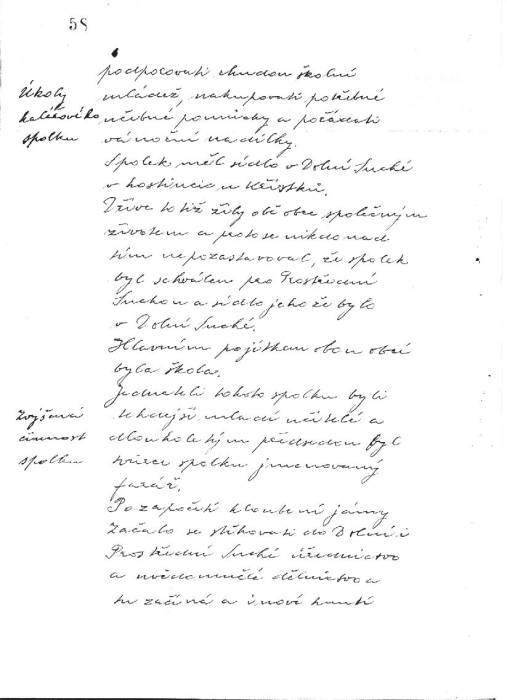 58
podporovati chudou školní
Úkoly
mládež, nakupovati potřebné
učebné pomůcky a pořádati
spolku
vánoční nadílky.
Spolek měl sídlo v Dolní Suché
v hostinci u Křístků.
Dříve totiž žily obě obce společným
životem a proto se nikdo nad
tím nepozastavoval, že spolek
byl schválen pro Prostřední
Suchou a sídlo jeho že bylo
v Dolní Suché.
Hlavním pojítkem obou obcí
byla škola.
Jednateli tohoto spolku byli
Zvýšená
tehdejší mladí učitelé a
činnost
dlouholetým předsedou byl
spolku
tvůrce spolku jmenovaný
farář.
Po započetí hloubení jámy
začalo se stěhovati do Dolní i
Prostřední Suché úřednictvo
a uvědomělé dělnictvo a
tu začíná a i nové